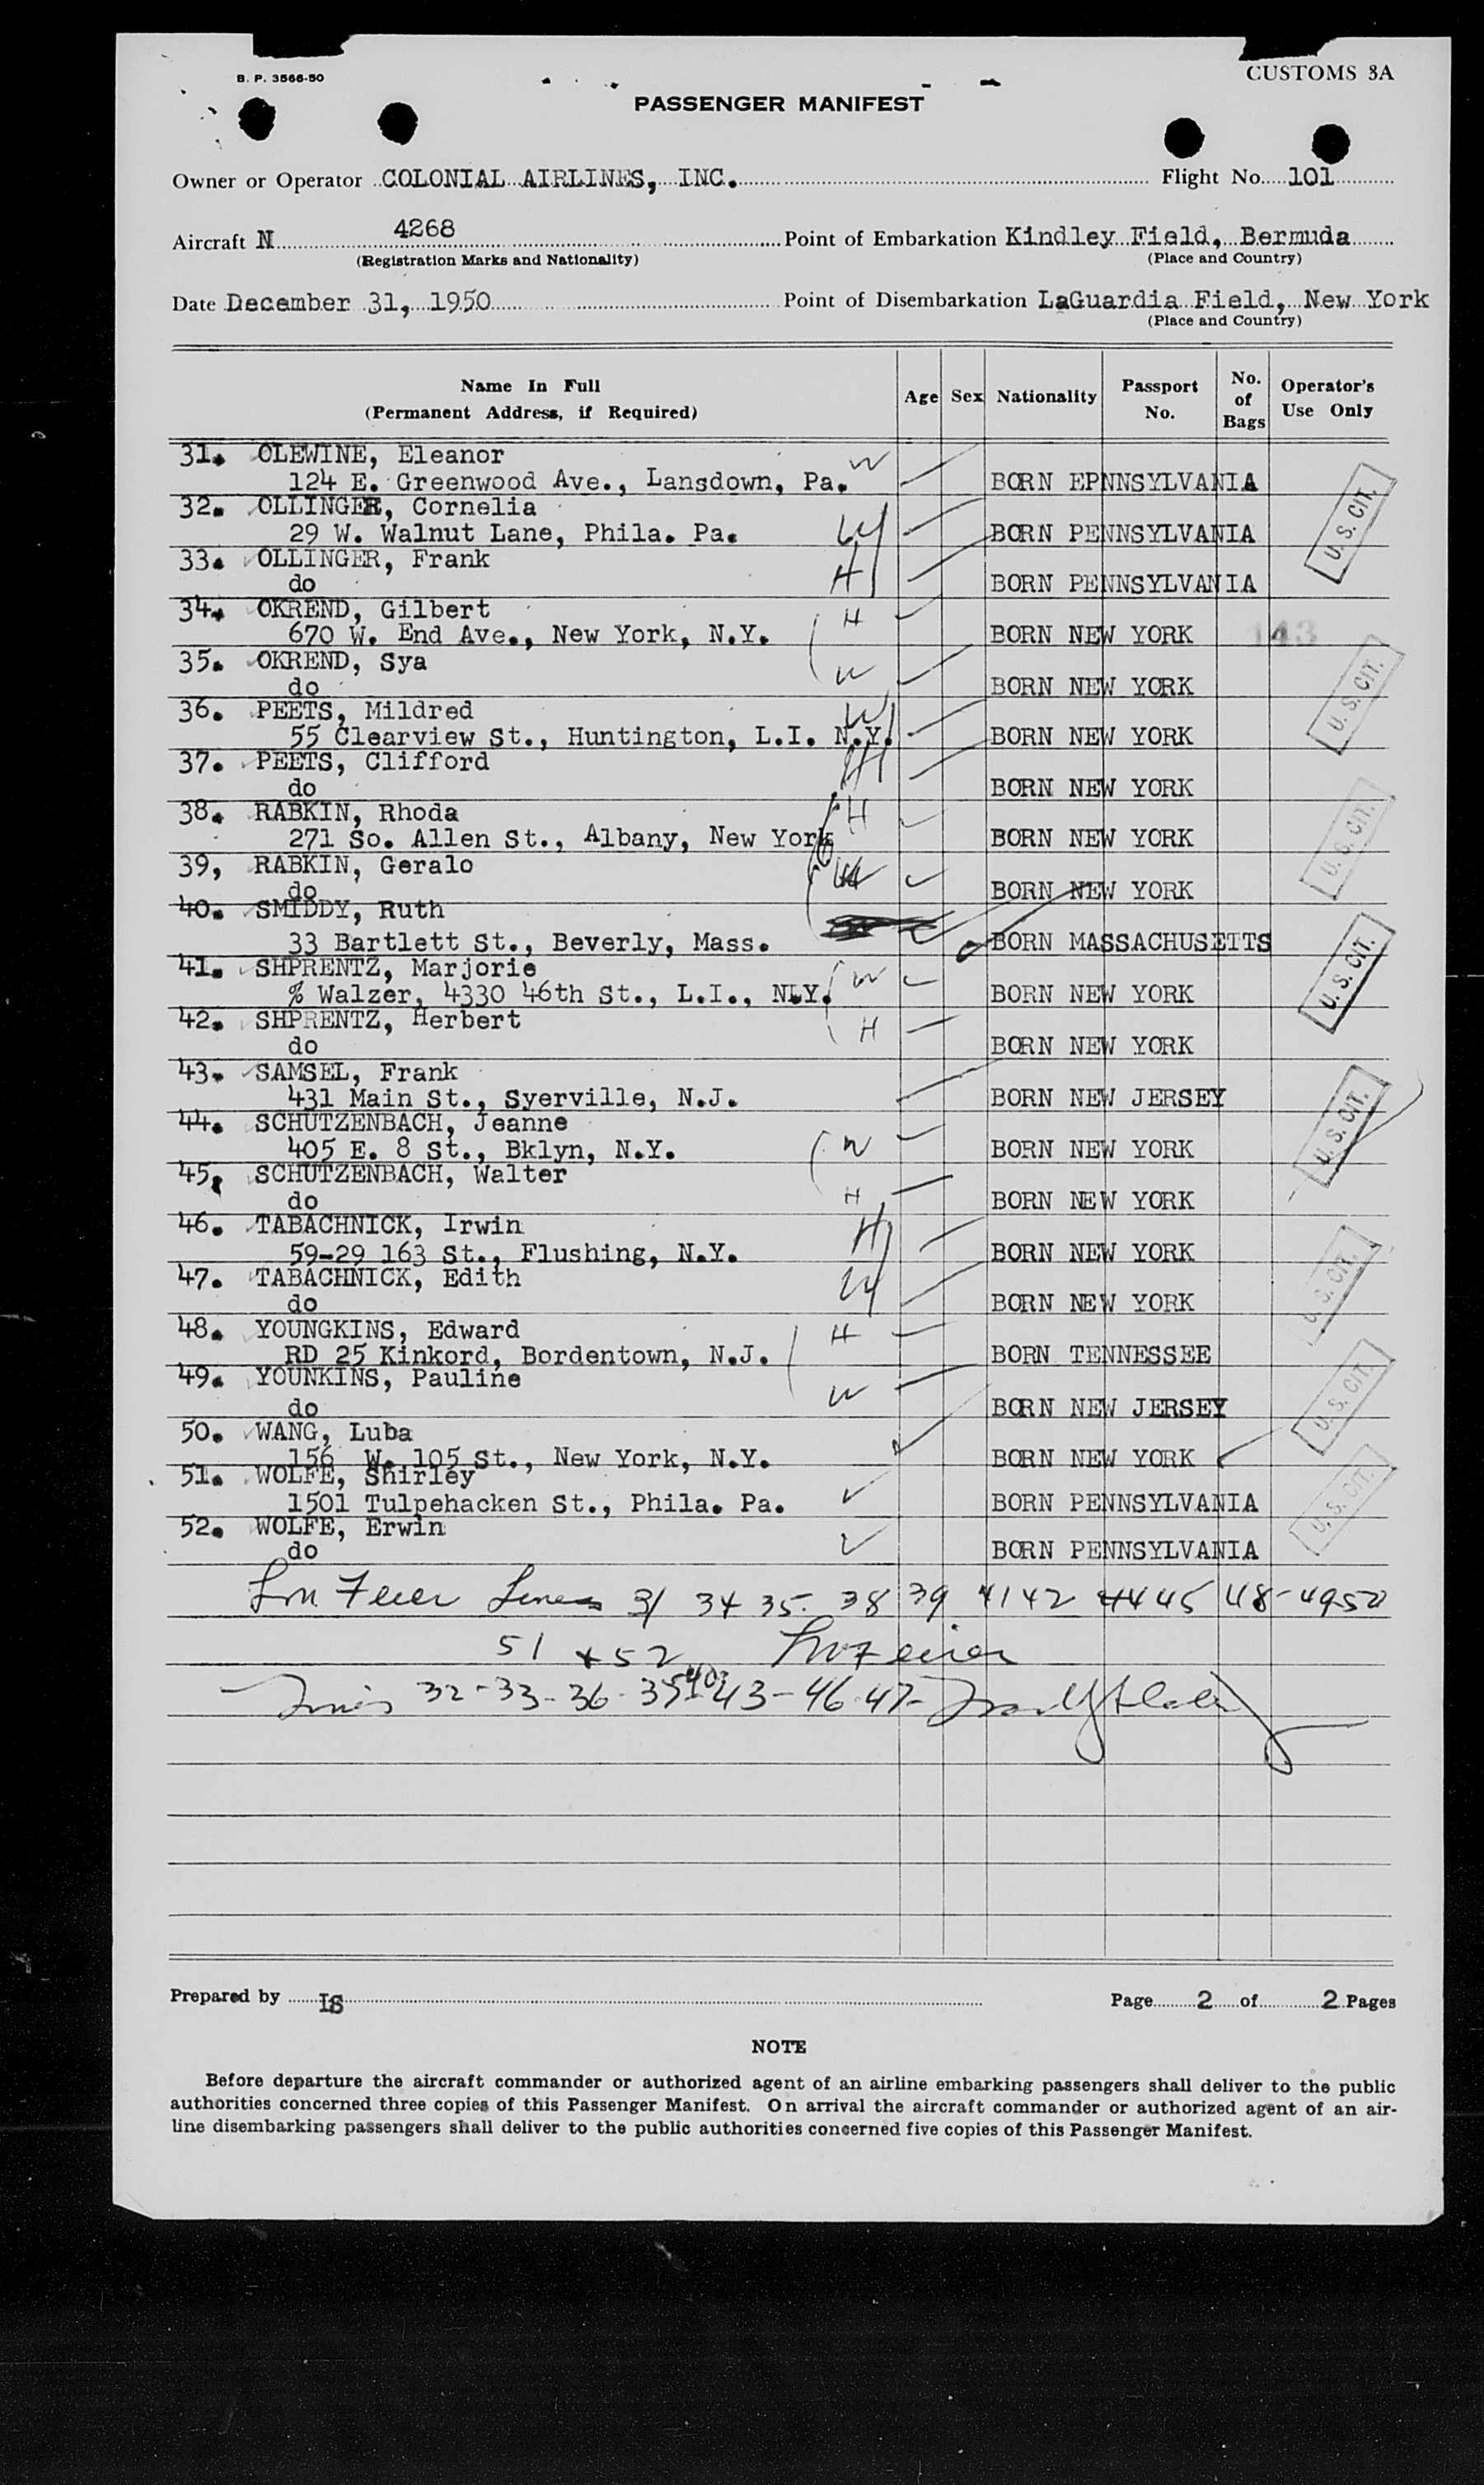 B. P. 3566-50
CUSTOMS 3A
PASSENGER MANIFEST
Owner or Operator COLONIAL AIRLINES, INC. Flight No. 101
Aircraft N 4268 Point of Embarkation Kindley Field, Bermuda
(Registration Marks and Nationality) (Place and Country)
Date December 31, 1950 Point of Disembarkation LaGuardia Field, New York
(Place and Country)
Name In Full (Permanent Address, if Required) Age Sex Nationality Passport No. No. of Bags Operator's Use Only
31. OLEWINE, Eleanor W
124 E. Greenwood Ave., Lansdown, Pa. BORN EPNNSYLVANIA
32. OLLINGER, Cornelia
29 W. Walnut Lane, Phila. Pa. W BORN PENNSYLVANIA U. S. CIT.
33. OLLINGER, Frank
do H BORN PENNSYLVANIA
34. OKREND, Gilbert H
670 W. End Ave., New York, N.Y. BORN NEW YORK 143
35. OKREND, Sya
do W BORN NEW YORK U. S. CIT.
36. PEETS, Mildred W
55 Clearview St., Huntington, L.I. N.Y. BORN NEW YORK
37. PEETS, Clifford H
do BORN NEW YORK
38. RABKIN, Rhoda H
271 So. Allen St., Albany, New York BORN NEW YORK U. S. CIT.
39, RABKIN, Geralo
do BORN NEW YORK
40. SMIDDY, Ruth
33 Bartlett St., Beverly, Mass. BORN MASSACHUSETTS
41. SHPRENTZ, Marjorie W
% Walzer, 4330 46th St., L.I., N.Y. BORN NEW YORK U. S. CIT.
42. SHPRENTZ, Herbert H
do BORN NEW YORK
43. SAMSEL, Frank
431 Main St., Syerville, N.J. BORN NEW JERSEY
44. SCHUTZENBACH, Jeanne
405 E. 8 St., Bklyn, N.Y. W BORN NEW YORK U. S. CIT.
45, SCHUTZENBACH, Walter
do H BORN NEW YORK
46. TABACHNICK, Irwin H
59-29 163 St., Flushing, N.Y. BORN NEW YORK
47. TABACHNICK, Edith W
do BORN NEW YORK U. S. CIT.
48. YOUNGKINS, Edward H
RD 25 Kinkord, Bordentown, N.J. BORN TENNESSEE
49. YOUNKINS, Pauline W
do BORN NEW JERSEY U. S. CIT.
50. WANG, Luba
156 W. 105 St., New York, N.Y. BORN NEW YORK
51. WOLFE, Shirley
1501 Tulpehacken St., Phila. Pa. BORN PENNSYLVANIA U. S. CIT.
52. WOLFE, Erwin
do BORN PENNSYLVANIA
Lines 31 34 35. 38 39 41 42 44 45 48-49 50
51 + 52
32-33-36- 43-46-47-
Prepared by IS Page 2 of 2 Pages
NOTE
Before departure the aircraft commander or authorized agent of an airline embarking passengers shall deliver to the public
authorities concerned three copies of this Passenger Manifest. On arrival the aircraft commander or authorized agent of an air-
line disembarking passengers shall deliver to the public authorities concerned five copies of this Passenger Manifest.